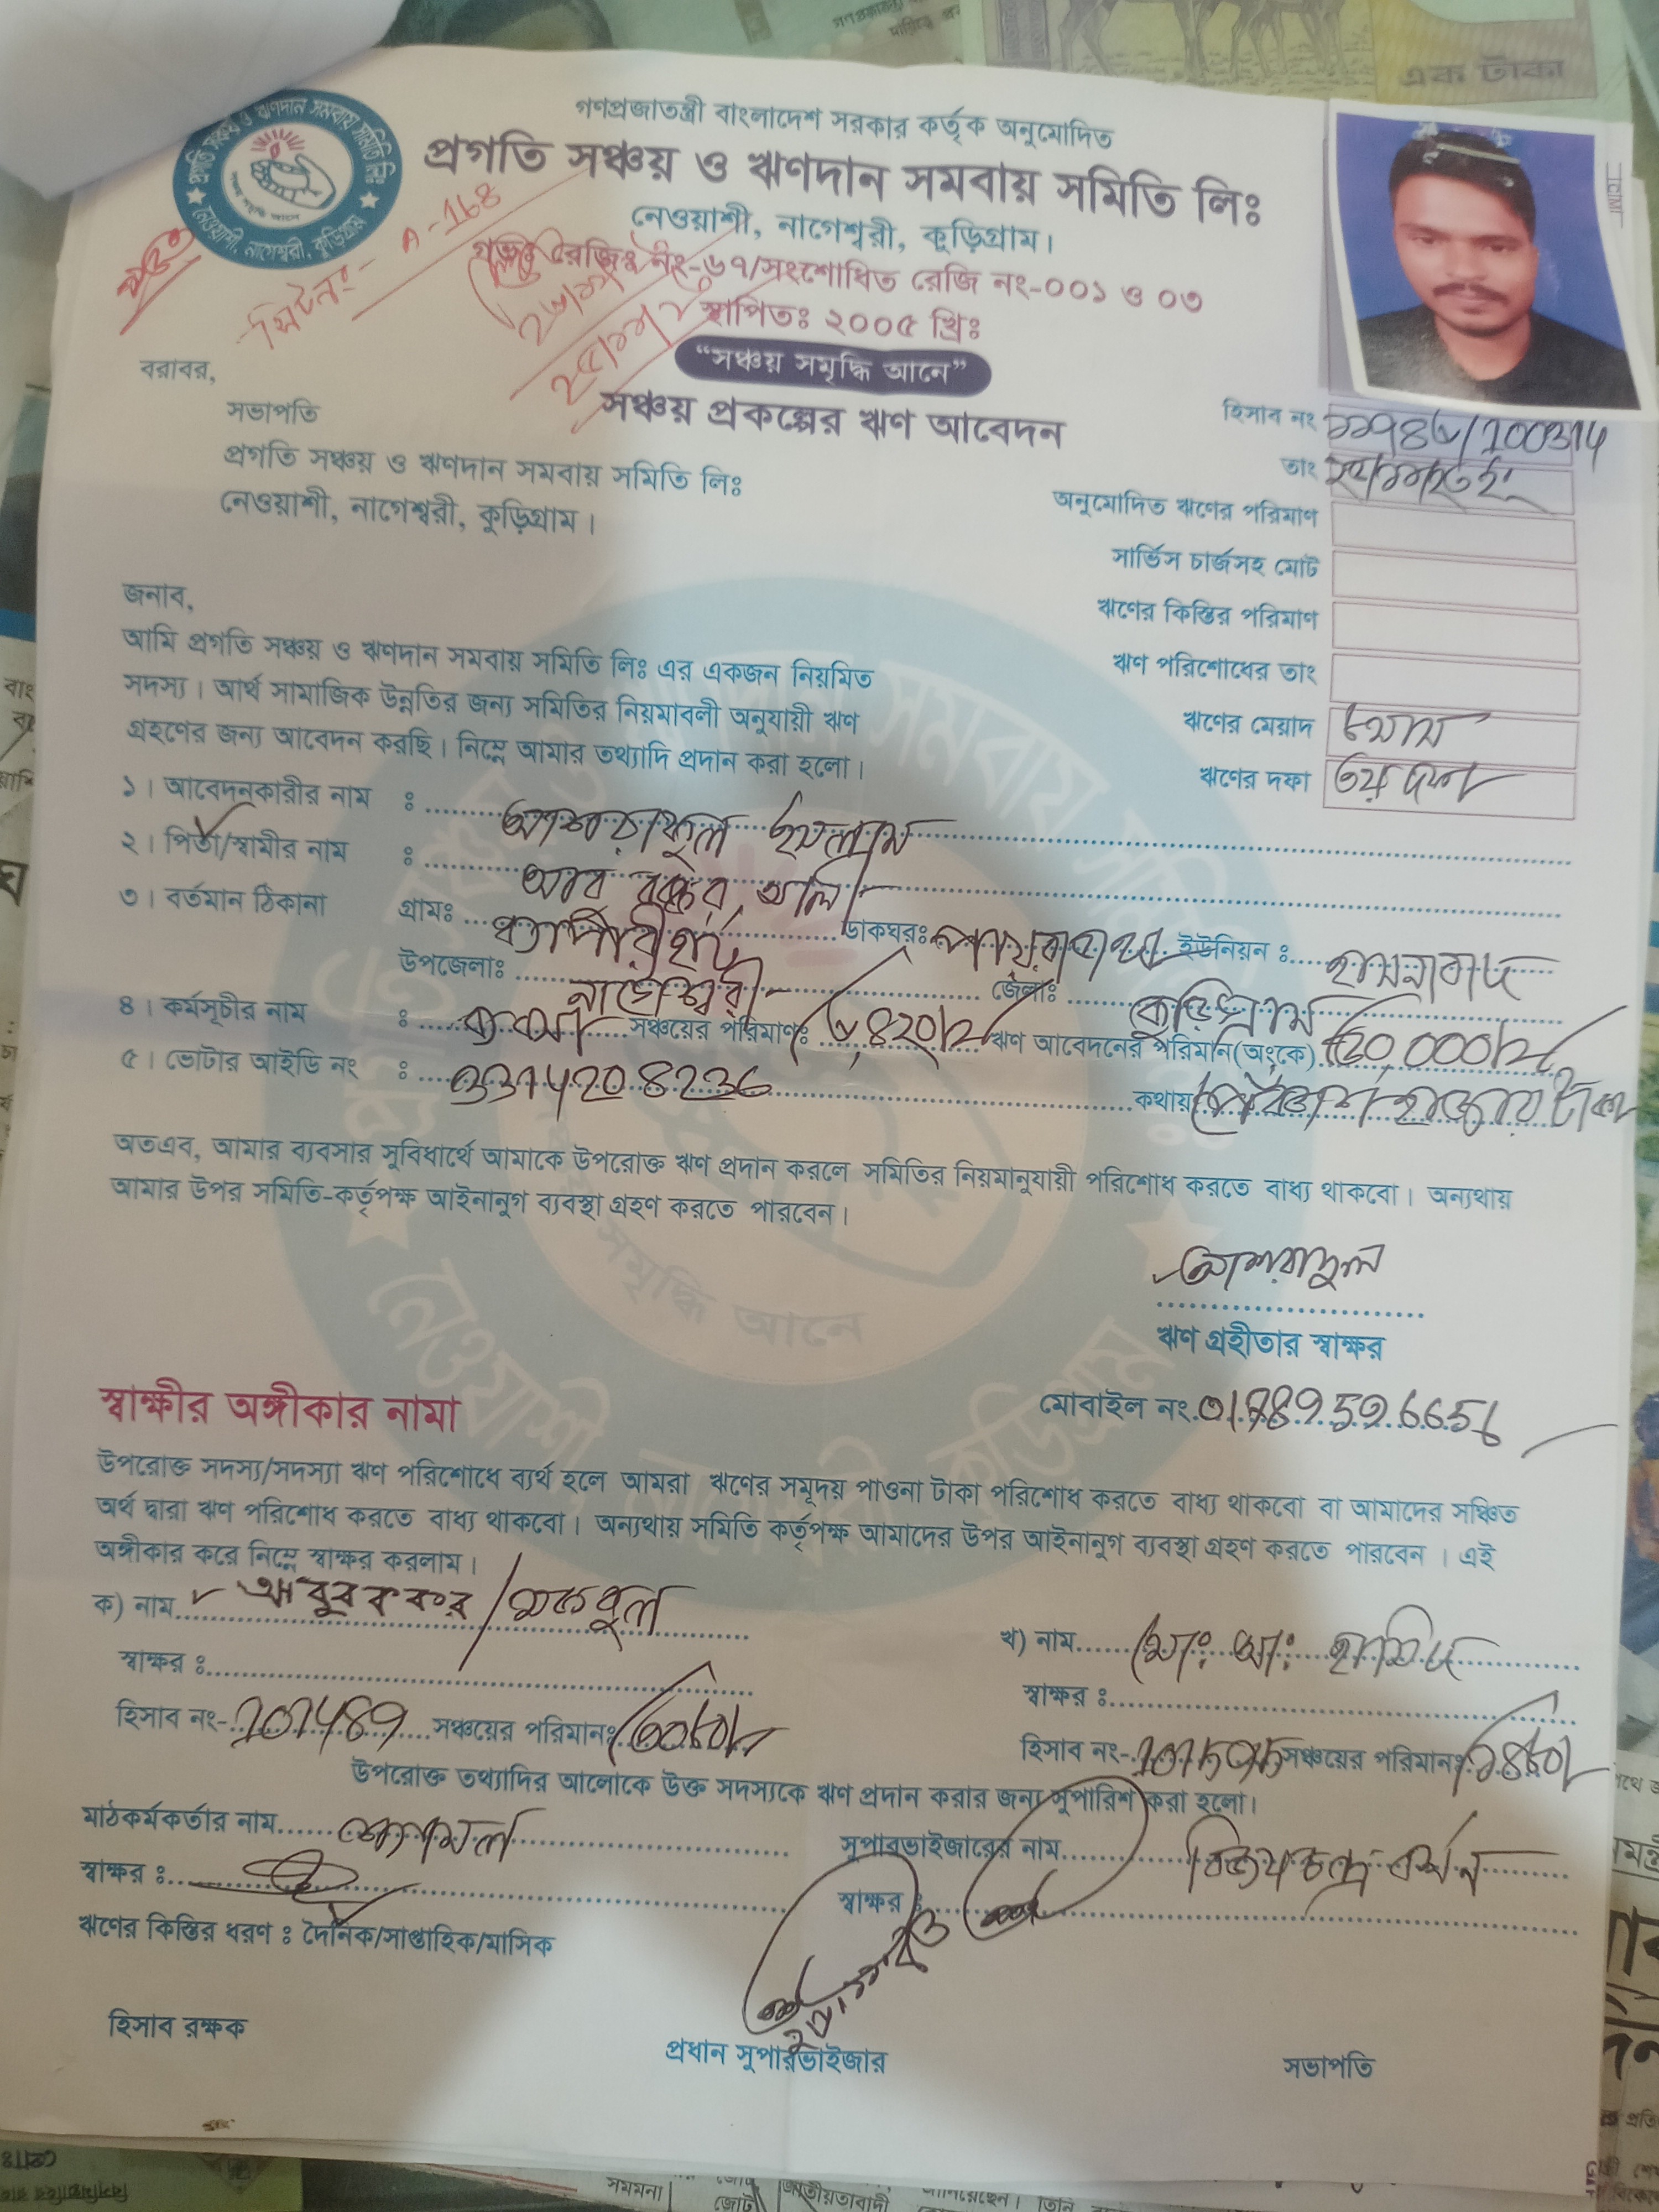 এক টাকা
গণপ্রজাতন্ত্রী বাংলাদেশ সরকার কর্তৃক অনুমোদিত
প্রগতি সঞ্চয় ও ঋণদান সমবায় সমিতি লিঃ
নেওয়াশী, নাগেশ্বরী, কুড়িগ্রাম।
গভঃ রেজিঃ নং-৬৭/সংশোধিত রেজি নং-০০১ ও ০৩
স্থাপিতঃ ২০০৫ খ্রিঃ
"সঞ্চয় সমৃদ্ধি আনে"
সঞ্চয় প্রকল্পের ঋণ আবেদন
প্রগতি সঞ্চয় ও ঋণদান সমবায় সমিতি লিঃ
নেওয়াশী, নাগেশ্বরী, কুড়িগ্রাম
A-168
বরাবর,
সভাপতি
প্রগতি সঞ্চয় ও ঋণদান সমবায় সমিতি লিঃ
নেওয়াশী, নাগেশ্বরী, কুড়িগ্রাম।
হিসাব নং
তাং
অনুমোদিত ঋণের পরিমাণ
সার্ভিস চার্জসহ মোট
ঋণের কিস্তির পরিমাণ
ঋণ পরিশোধের তাং
ঋণের মেয়াদ
ঋণের দফা ৩য় দফা
জনাব,
আমি প্রগতি সঞ্চয় ও ঋণদান সমবায় সমিতি লিঃ এর একজন নিয়মিত
সদস্য। আর্থ সামাজিক উন্নতির জন্য সমিতির নিয়মাবলী অনুযায়ী ঋণ
গ্রহণের জন্য আবেদন করছি। নিম্নে আমার তথ্যাদি প্রদান করা হলো।
১। আবেদনকারীর নাম : আশরাফুল ইসলাম
২। পিতা/স্বামীর নাম : আবু বক্কর আলি
৩। বর্তমান ঠিকানা গ্রামঃ ব্যাপারীহাট ডাকঘরঃ ইউনিয়ন : হাসনাবাদ
উপজেলাঃ নাগেশ্বরী জেলাঃ কুড়িগ্রাম
৪। কর্মসূচীর নাম : ব্যবসা সঞ্চয়ের পরিমাণঃ ঋণ আবেদনের পরিমান(অংকে)
৫। ভোটার আইডি নং : 3314208236 কথায় হাজার টাকা
অতএব, আমার ব্যবসার সুবিধার্থে আমাকে উপরোক্ত ঋণ প্রদান করলে সমিতির নিয়মানুযায়ী পরিশোধ করতে বাধ্য থাকবো। অন্যথায়
আমার উপর সমিতি-কর্তৃপক্ষ আইনানুগ ব্যবস্থা গ্রহণ করতে পারবেন।
আশরাফুল
ঋণ গ্রহীতার স্বাক্ষর
স্বাক্ষীর অঙ্গীকার নামা
মোবাইল নং
উপরোক্ত সদস্য/সদস্যা ঋণ পরিশোধে ব্যর্থ হলে আমরা ঋণের সমূদয় পাওনা টাকা পরিশোধ করতে বাধ্য থাকবো বা আমাদের সঞ্চিত
অর্থ দ্বারা ঋণ পরিশোধ করতে বাধ্য থাকবো। অন্যথায় সমিতি কর্তৃপক্ষ আমাদের উপর আইনানুগ ব্যবস্থা গ্রহণ করতে পারবেন। এই
অঙ্গীকার করে নিম্নে স্বাক্ষর করলাম।
ক) নাম আবুবককর / মকবুল
খ) নাম মোঃ আঃ হামিদ
স্বাক্ষর :
স্বাক্ষর :
হিসাব নং- 101489 সঞ্চয়ের পরিমানঃ
হিসাব নং- সঞ্চয়ের পরিমানঃ
উপরোক্ত তথ্যাদির আলোকে উক্ত সদস্যকে ঋণ প্রদান করার জন্য সুপারিশ করা হলো।
মাঠকর্মকর্তার নাম শ্যামল
সুপারভাইজারের নাম বিজয় চন্দ্র বর্মন
স্বাক্ষর :
স্বাক্ষর :
ঋণের কিস্তির ধরণ : দৈনিক/সাপ্তাহিক/মাসিক
হিসাব রক্ষক
প্রধান সুপারভাইজার
সভাপতি